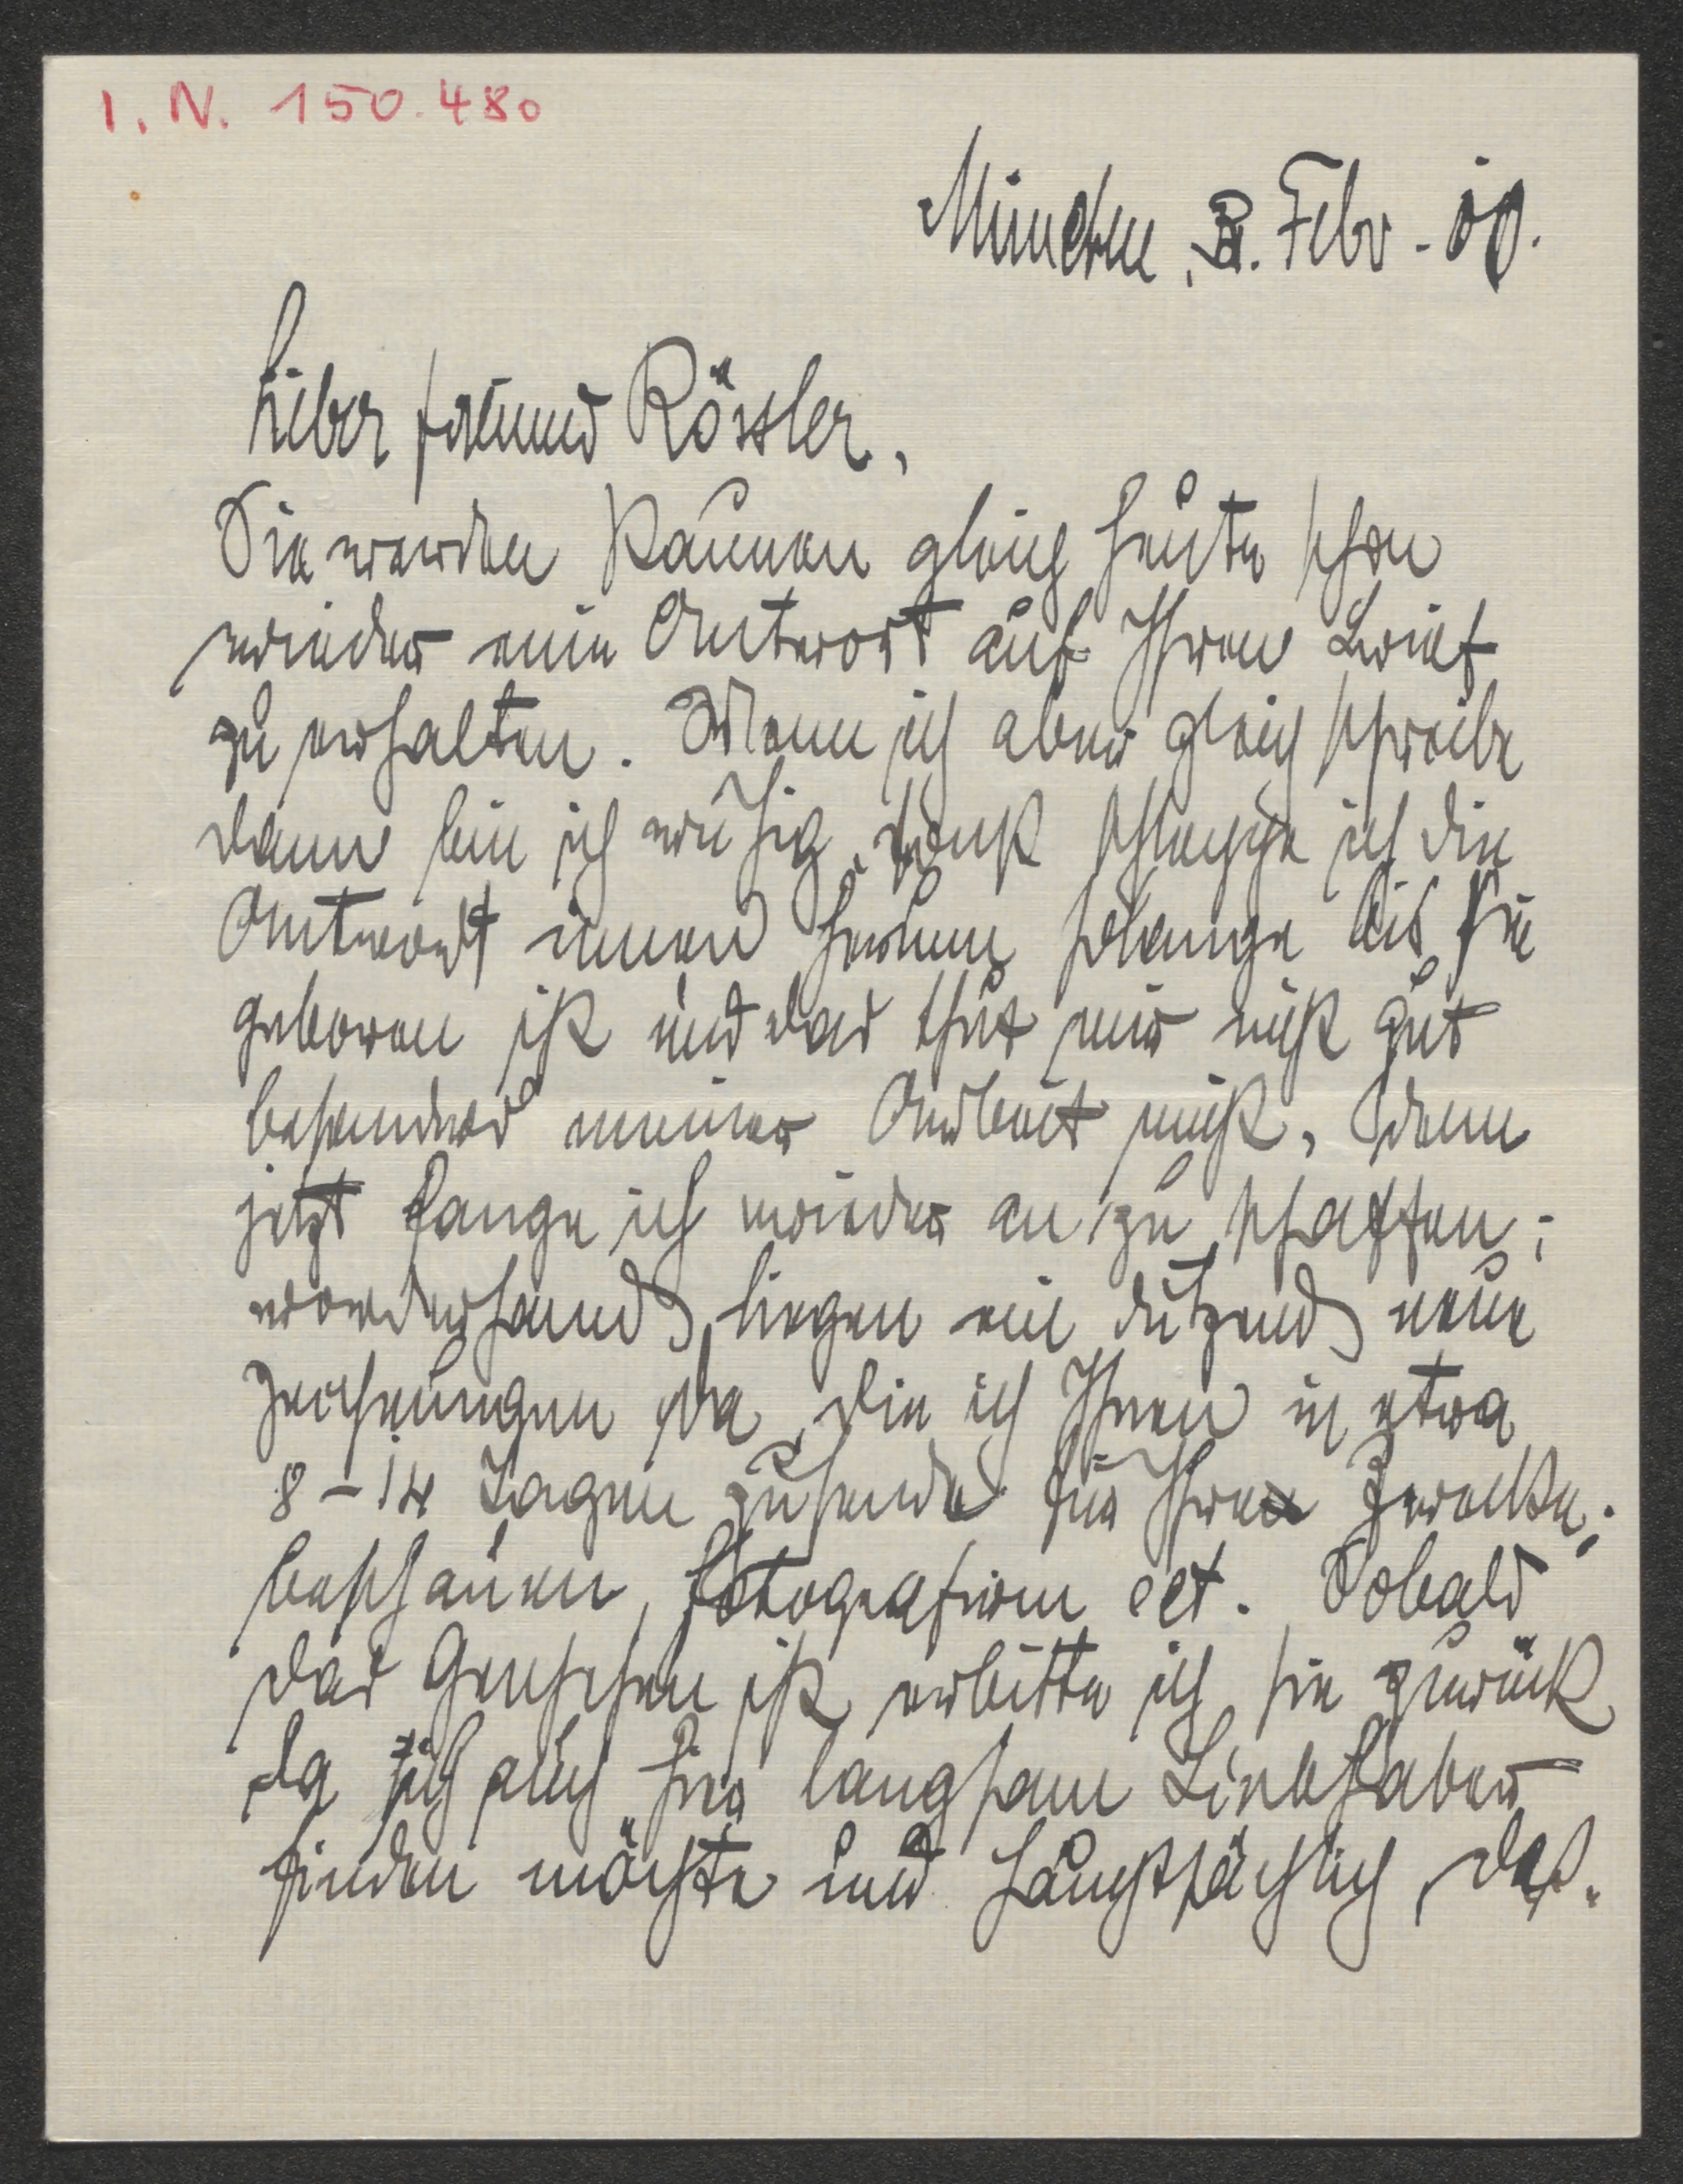 I. N. 150.480
München, 3. Febr. 00.
Lieber freund Rössler,
Sie werden staunen gleich heute schon
wieder eine Antwort auf Ihren Brief
zu erhalten. Wenn ich aber gleich schreibe
dann bin ich ruhig, sonst schleppe ich die
Antwort immer herum solange bis sie
geboren ist und das thut mir nicht gut
besonders meiner Arbeit nicht, denn
jetzt fange ich wieder an zu schaffen;
vorderhand liegen ein dutzend neue
Zeichnungen da, die ich Ihnen in etwa
8-14 Tagen zusende für Ihre Zwecke;
beschauen, fotografiren ect. Sobald
das Geschehen ist erbitte ich sie zurück
da ich auch hier langsam Liebhaber
finden möchte und hauptsächlich, das.